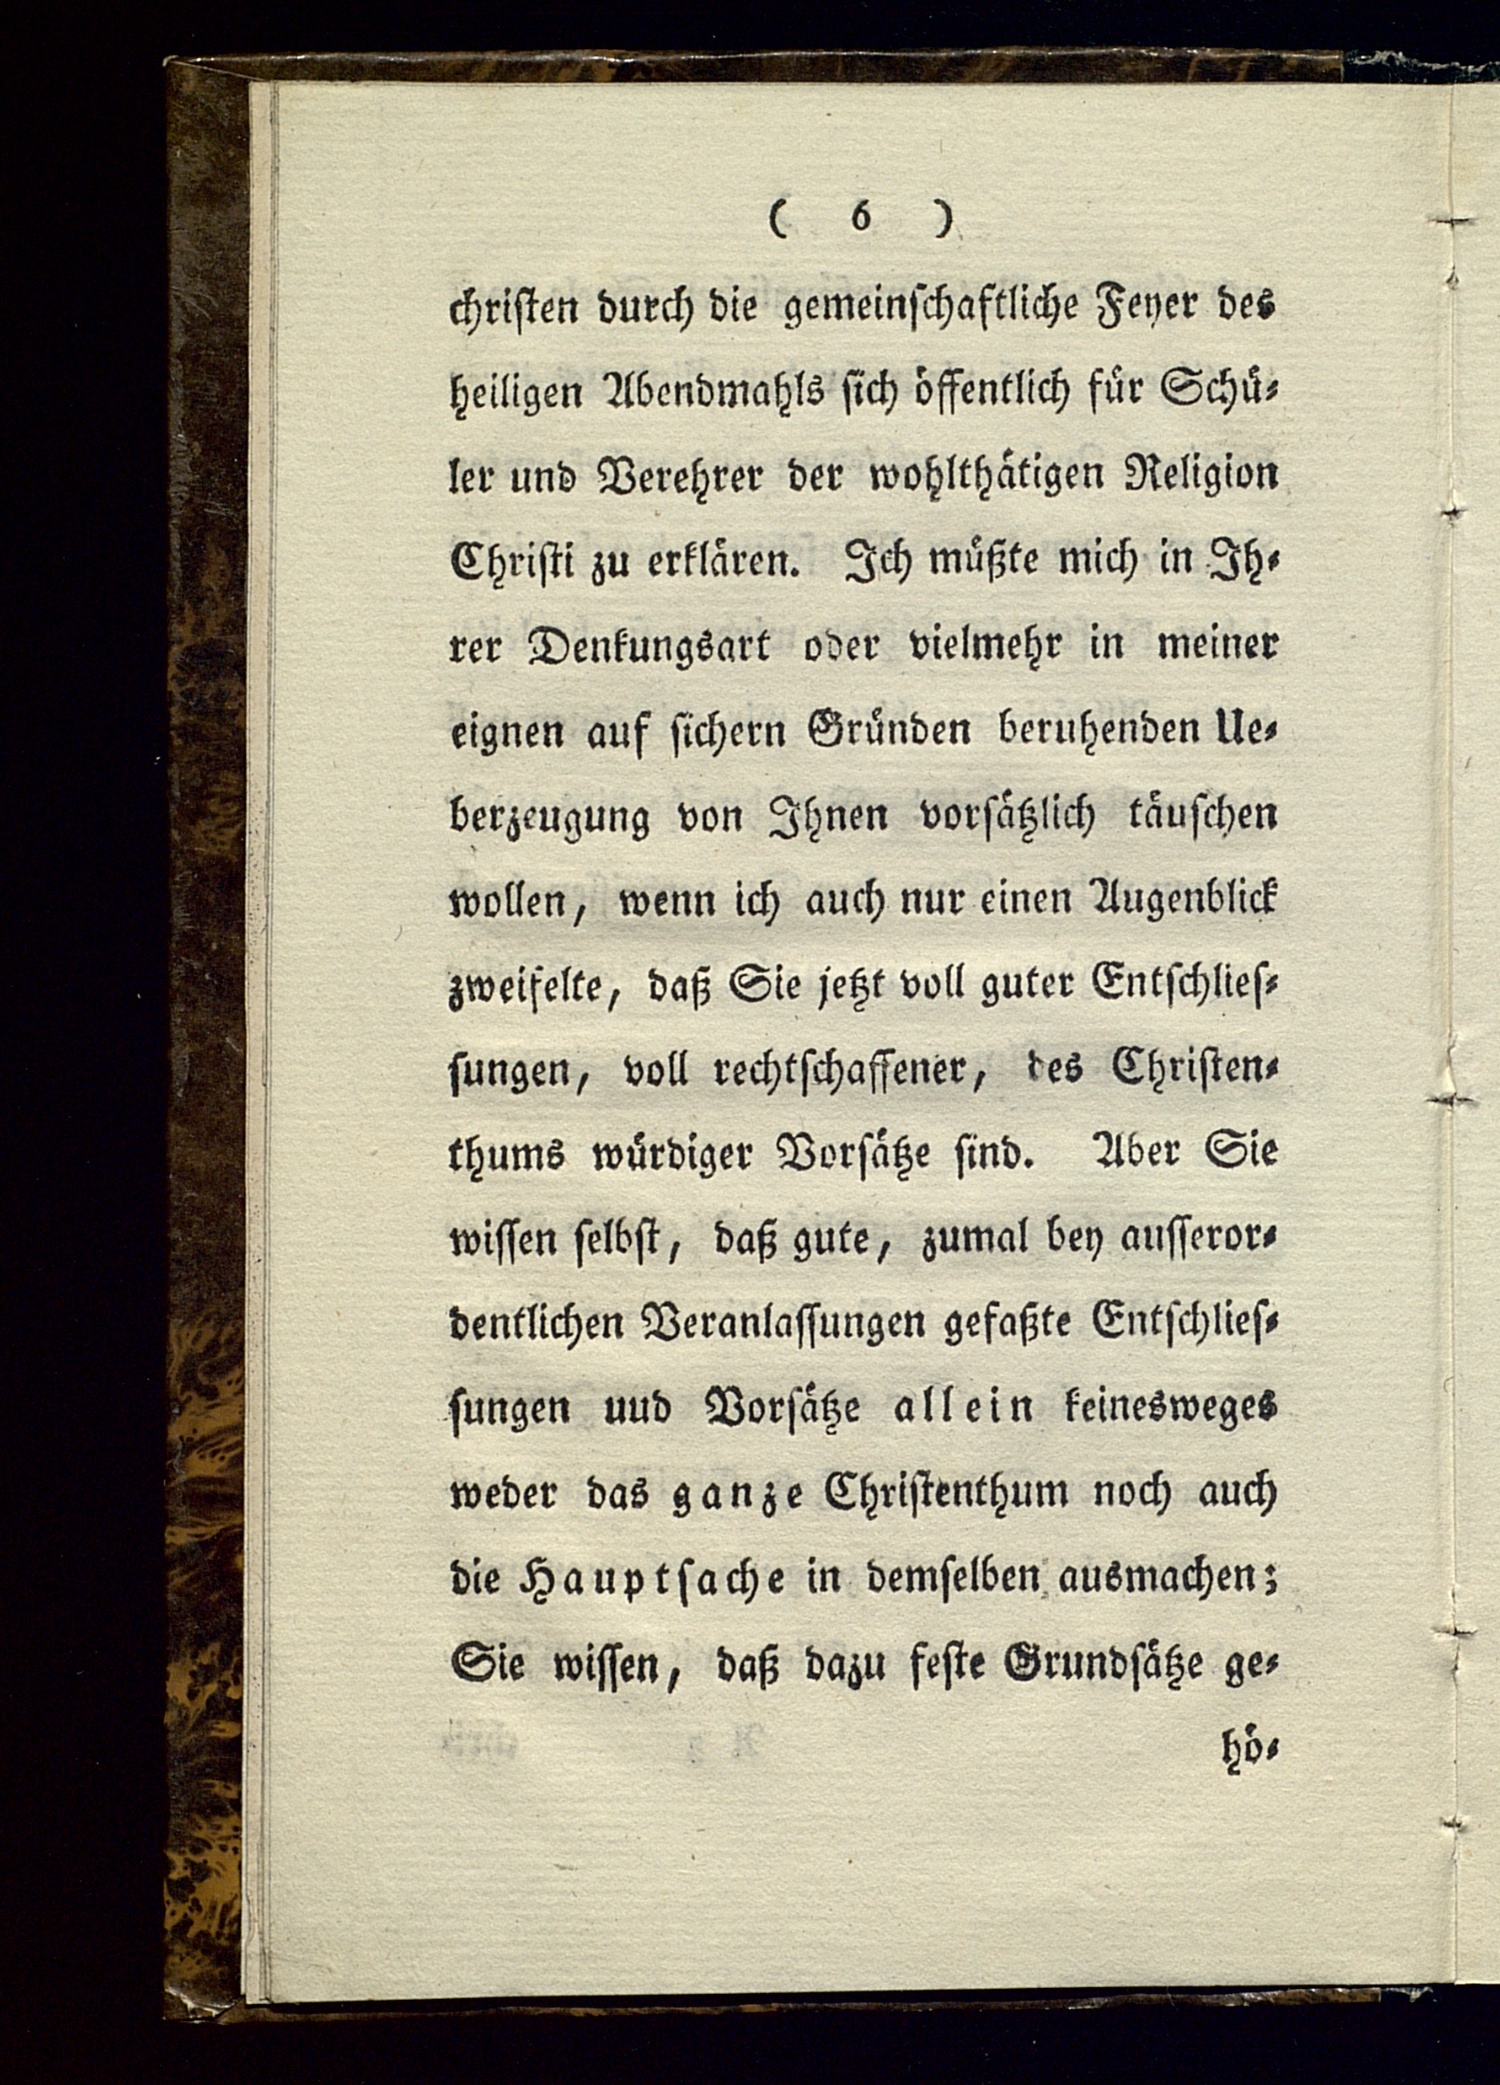 ( 6 )
chriſten durch die gemeinſchaftliche Feyer des
heiligen Abendmahls ſich öffentlich für Schü⸗
ler und Verehrer der wohlthätigen Religion
Chriſti zu erklären. Ich müßte mich in Ih⸗
rer Denkungsart oder vielmehr in meiner
eignen auf ſichern Gründen beruhenden Ue⸗
berzeugung von Ihnen vorſätzlich täuſchen
wollen, wenn ich auch nur einen Augenblick
zweifelte, daß Sie jetzt voll guter Entſchlieſ⸗
ſungen, voll rechtſchaffener, des Chriſten⸗
thums würdiger Vorſätze ſind. Aber Sie
wiſſen ſelbſt, daß gute, zumal bey auſſeror⸗
dentlichen Veranlaſſungen gefaßte Entſchlieſ⸗
ſungen uud Vorſätze allein keinesweges
weder das ganze Chriſtenthum noch auch
die Hauptſache in demſelben ausmachen;
Sie wiſſen, daß dazu feſte Grundſätze ge⸗
hö⸗